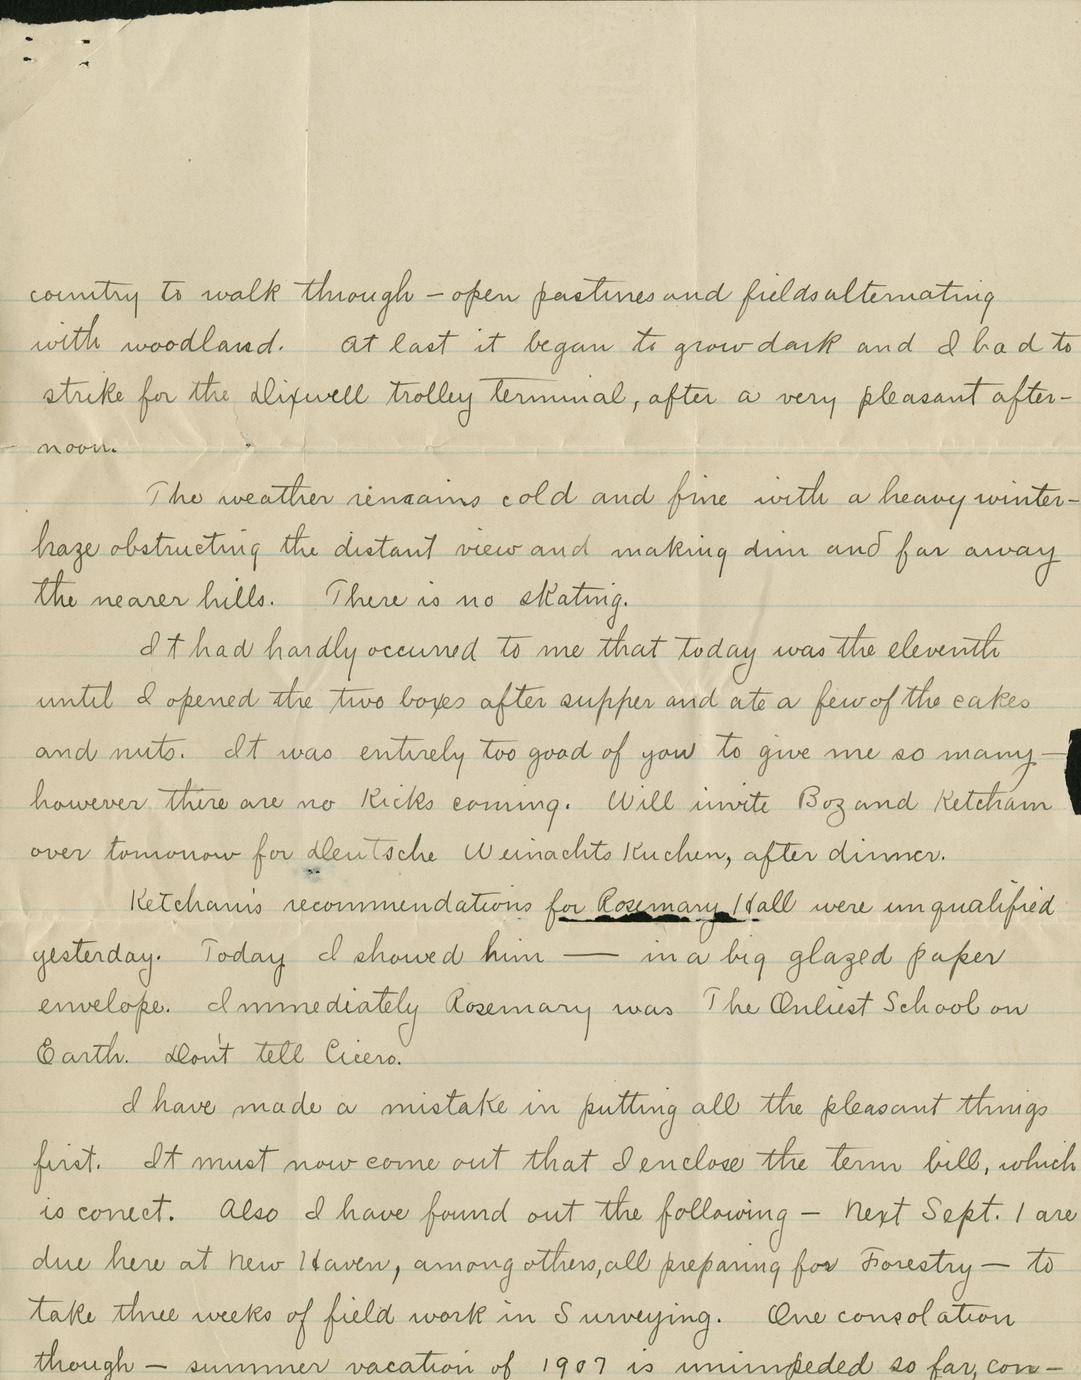 country to walk through – open pastures and fields alternating
with woodland. At last it began to grow dark and I had to
strike for the Dixwell trolley terminal, after a very pleasant after-
noon.
The weather remains cold and fine with a heavy winter-
haze obstructing the distant view and making dim and far away
the nearer hills. There is no skating.
It had hardly occurred to me that today was the eleventh
until I opened the two boxes after supper and ate a few of the cakes
and nuts. It was entirely too good of you to give me so many –
however there are no kicks coming. Will invite Boz and Ketcham
over tomorrow for Deutsche Weinachts Kuchen, after dinner.
Ketcham's recommendations for Rosemary Hall were unqualified
yesterday. Today I showed him —— in a big glazed paper
envelope. Immediately Rosemary was The Onliest School on
Earth. Don't tell Cicero.
I have made a mistake in putting all the pleasant things
first. It must now come out that I enclose the term bill, which
is correct. Also I have found out the following – Next Sept. 1 are
due here at New Haven, among others, all preparing for Forestry – to
take three weeks of field work in Surveying. One consolation
though – summer vacation of 1907 is unimpeded so far, con-